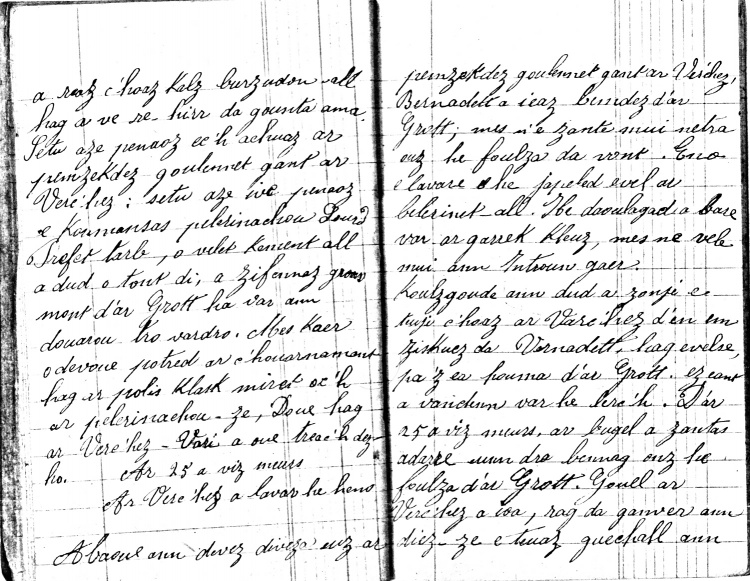 a reaz c'hoaz kalz burzudou all
hag a ve re hirr da gounta ama.
Setu aze penaoz ec'h achuaz ar
pemzekdez goulennet gant ar
Verc'hez: setu aze ive penaoz
e koumansas pelerinachou Lourd
Prefet tarb, o velet kement all
a dud o tont di, a zifennaz groun
mont d'ar Grott ha var ann
douarou tro vardro. Mes kaer
o devoue potred ar c'houarnamant
hag ar polis klask miret oc'h
ar pelerinachou-ze, Doue hag
ar Verc'hez-Vari a oue treac'h dez-
ho.
Ar 25 a viz meurs
Ar Verc'hez a lavar he hano
Abaoue ann devez diveza euz ar
pemzekdez goulennet gant ar Verc'hez,
Bernadett a ieaz bemdez d'ar
Grott; mes n'e zante mui netra
ouz he foulza da vont. Eno
e lavare he japeled evel ar
belerinet-all. He daoulagad a bare
var ar garrek kleuz, mes ne vele
mui ann Introun gaer.
Koulzgoude ann dud a zonje e
tuije c'hoaz ar Verc'hez d'en em
ziskuez da Vernadett, hag evelse,
pa'z ea houma d'ar Grott, ez eant
a vanden var he lerc'h. D'ar
25 a viz meurs, ar bugel a zantas
adarre eunn dra bennag ouz he
foulza d'ar Grott. Gouel ar
Verc'hez a ioa, rag da ganver ann
diez-ze e teuaz guechall ann